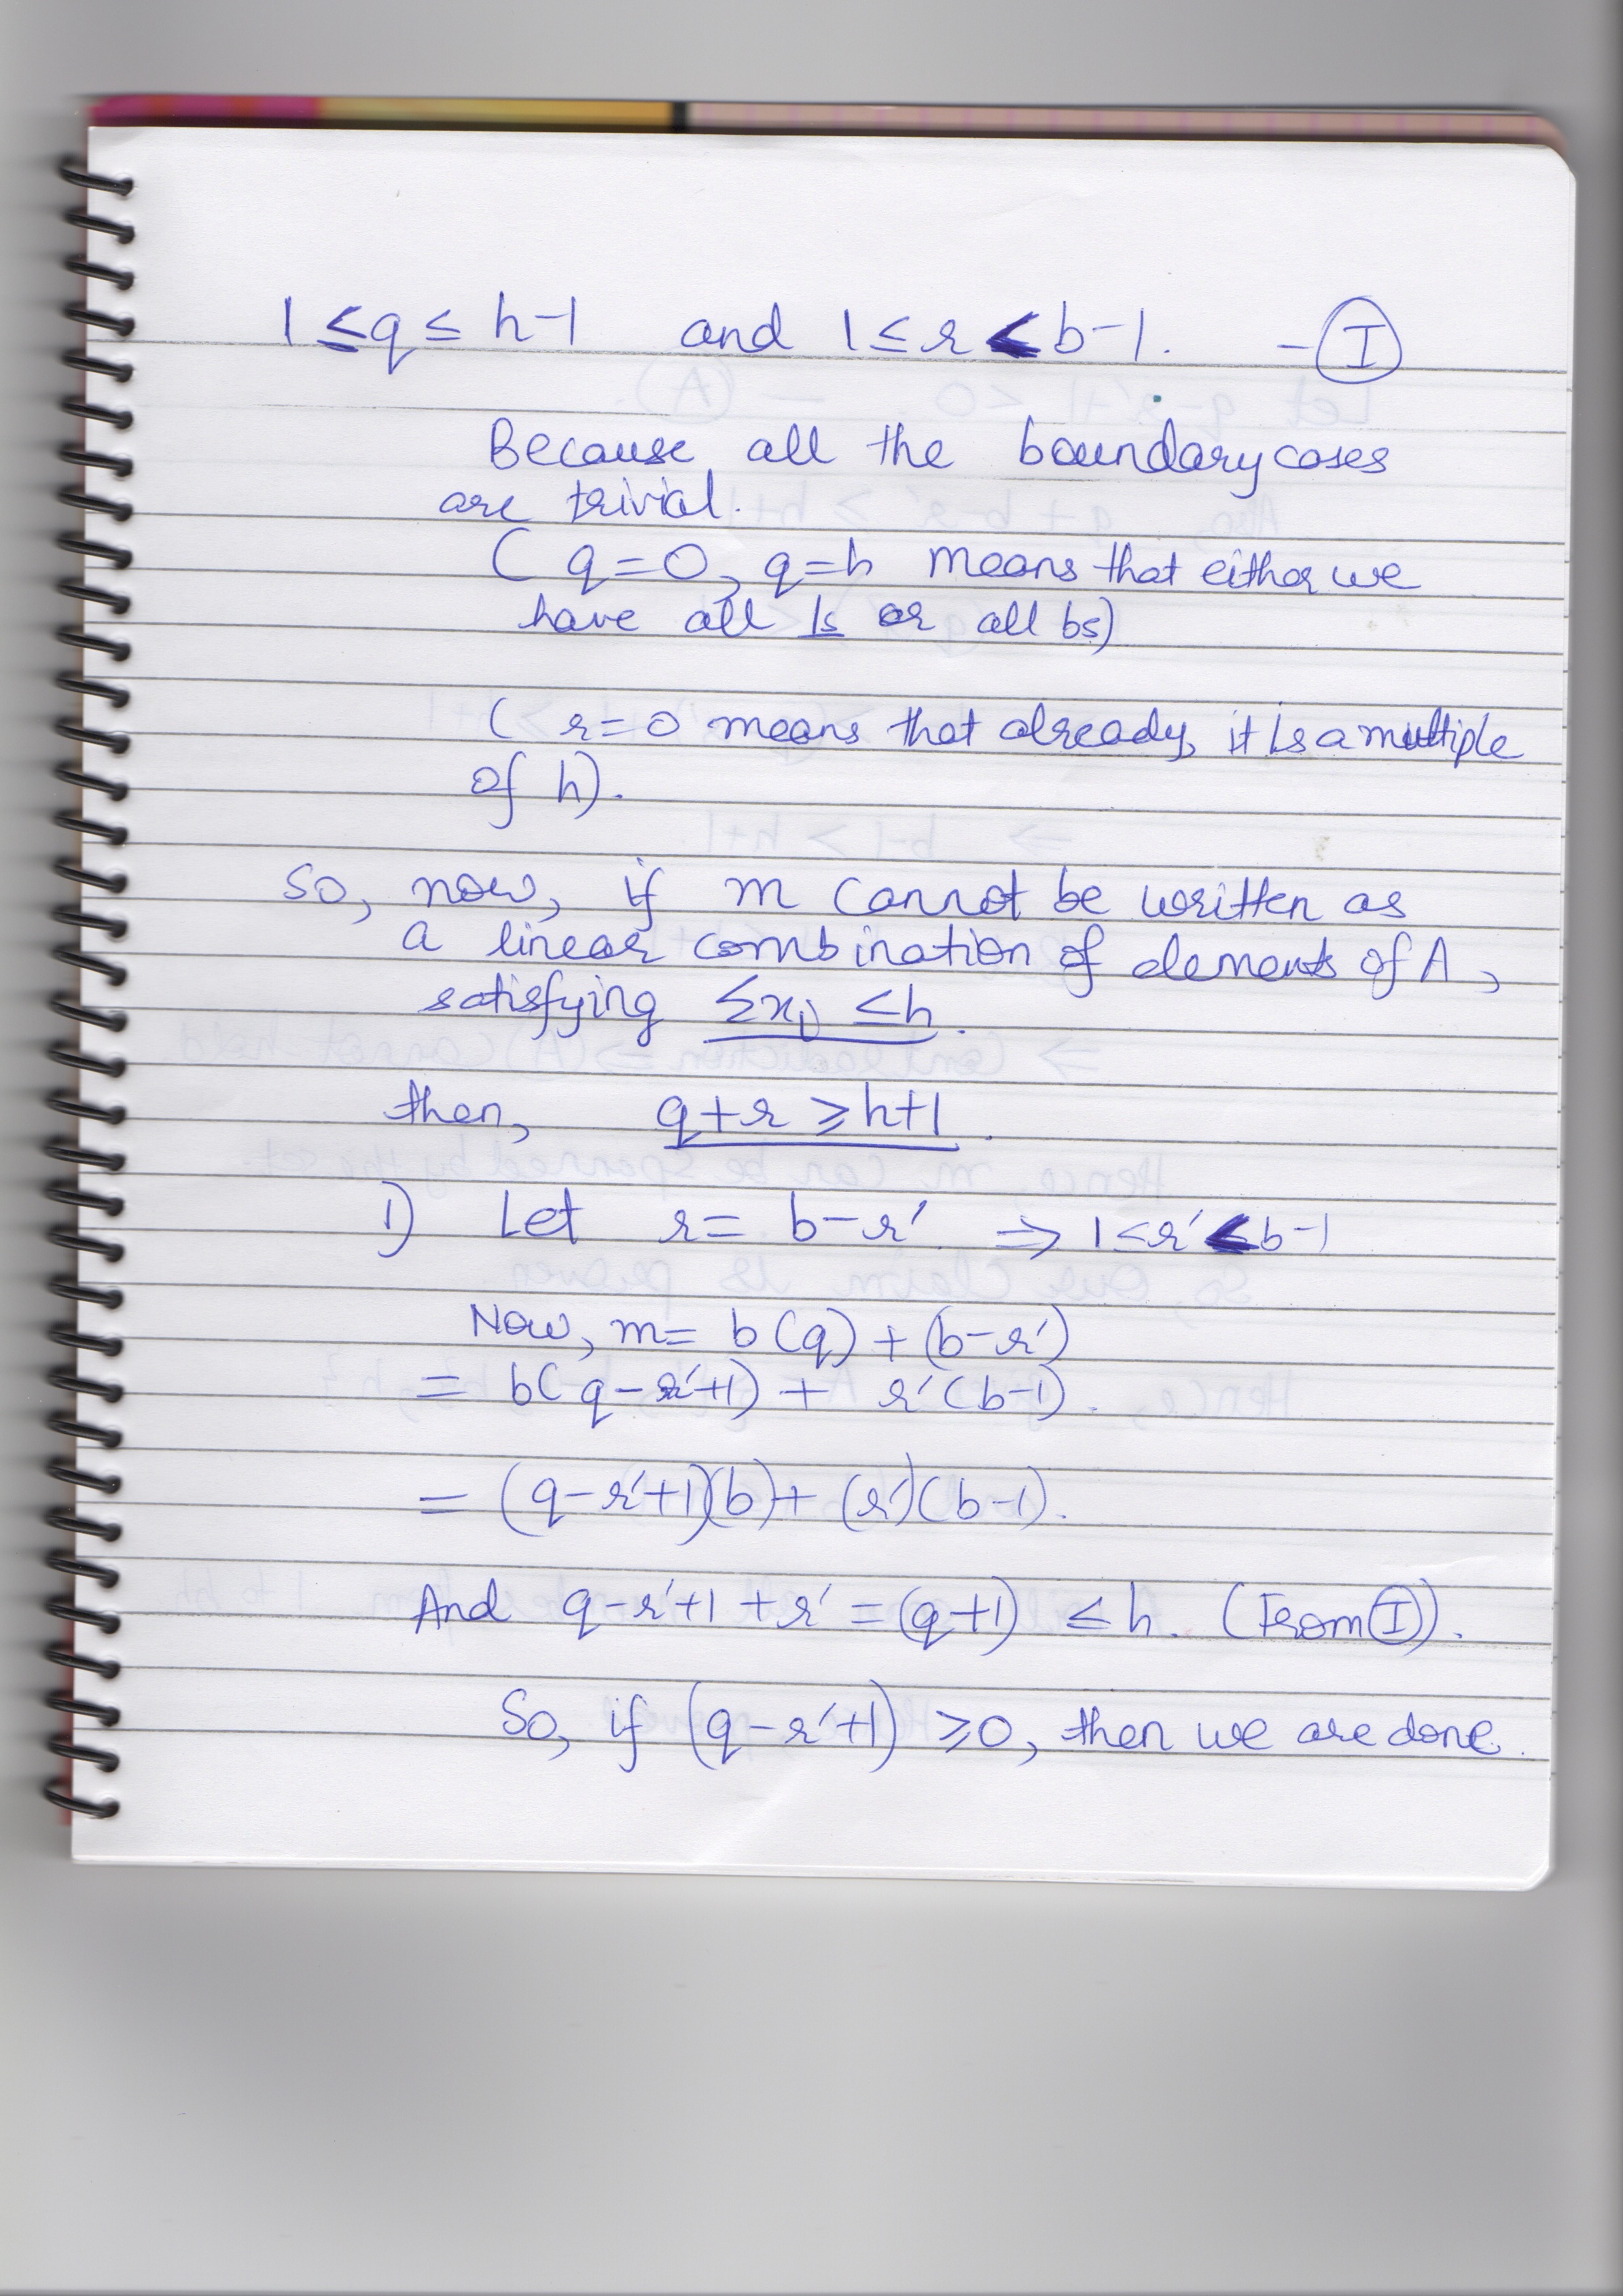 1 ≤ q ≤ h-1 and 1 ≤ r ≤ b-1. - Ⓘ
Because all the boundary cases
are trivial.
( q=0, q=h means that either we
have all 1s or all bs)
( r=0 means that already, it is a multiple
of h).
So, now, if m cannot be written as
a linear combination of elements of A,
satisfying Σxi ≤ h.
then, q+r ≥ h+1.
1) Let r = b-r' ⇒ 1 ≤ r' ≤ b-1
Now, m = b(q) + (b-r')
= b(q-r'+1) + r'(b-1).
= (q-r'+1)(b) + (r')(b-1).
And q-r'+1+r' = (q+1) ≤ h. (From Ⓘ).
So, if (q-r'+1) ≥ 0, then we are done.